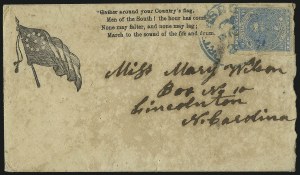 "Gather around your Country's flag,
Men of the South! the hour has come
None may falter, and none may lag;
March to the sound of the fife and drum.
Miss Mary Wilson
Box No 10
Lincolnton
N. Carolina